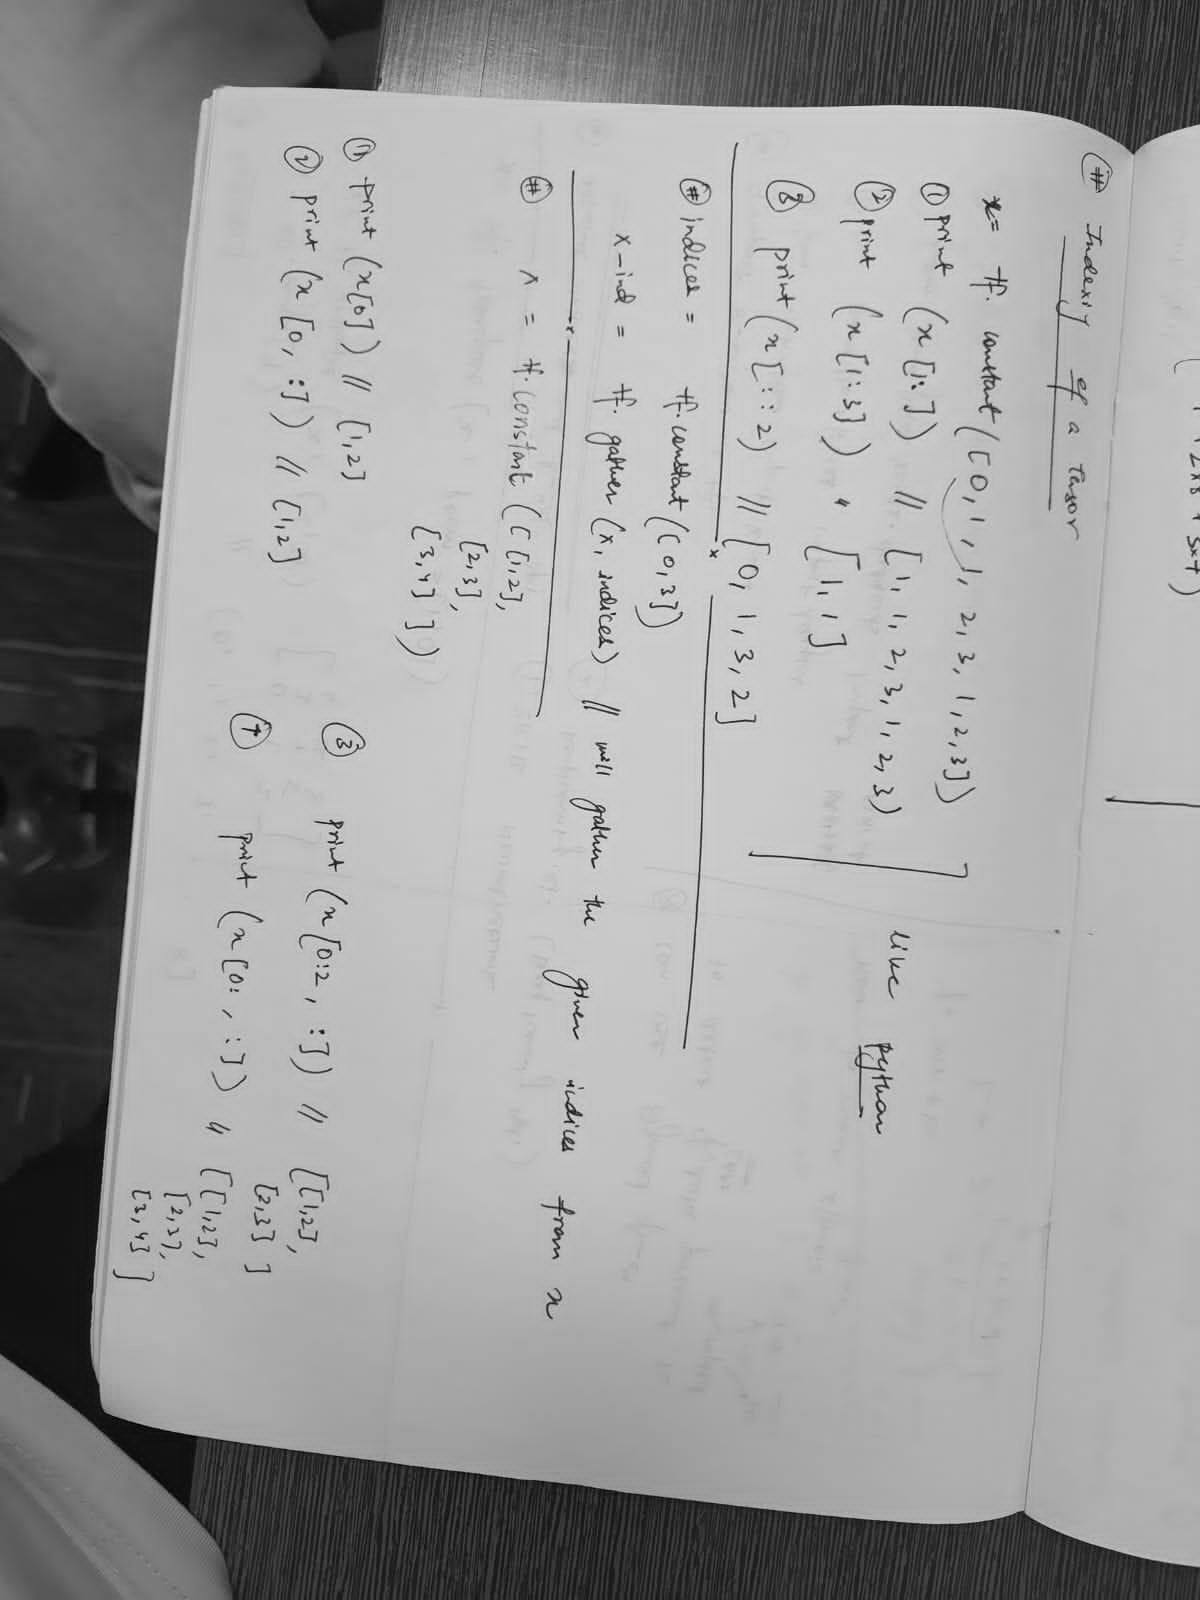 # Indexing of a tensor
x = tf. constant ([0, 1, 1, 2, 3, 1, 2, 3])
① print (x [1:]) // [1, 1, 2, 3, 1, 2, 3)
② print (x [1:3]) " [1, 1]
③ print (x [: : 2) // [0, 1, 3, 2]
like python
# indices = tf.constant ([0,3])
x-ind = tf. gather (x, indices) // will gather the given indices from x
# x = tf. constant ([[1,2],
[2,3],
[3,4] ])
① print (x[0]) // [1,2]
② print (x [0, :]) // [1,2]
③ print (x [0:2, :]) // [[1,2],
[2,3] ]
④ print (x [0: , :]) " [[1,2],
[2,3],
[3,4] ]